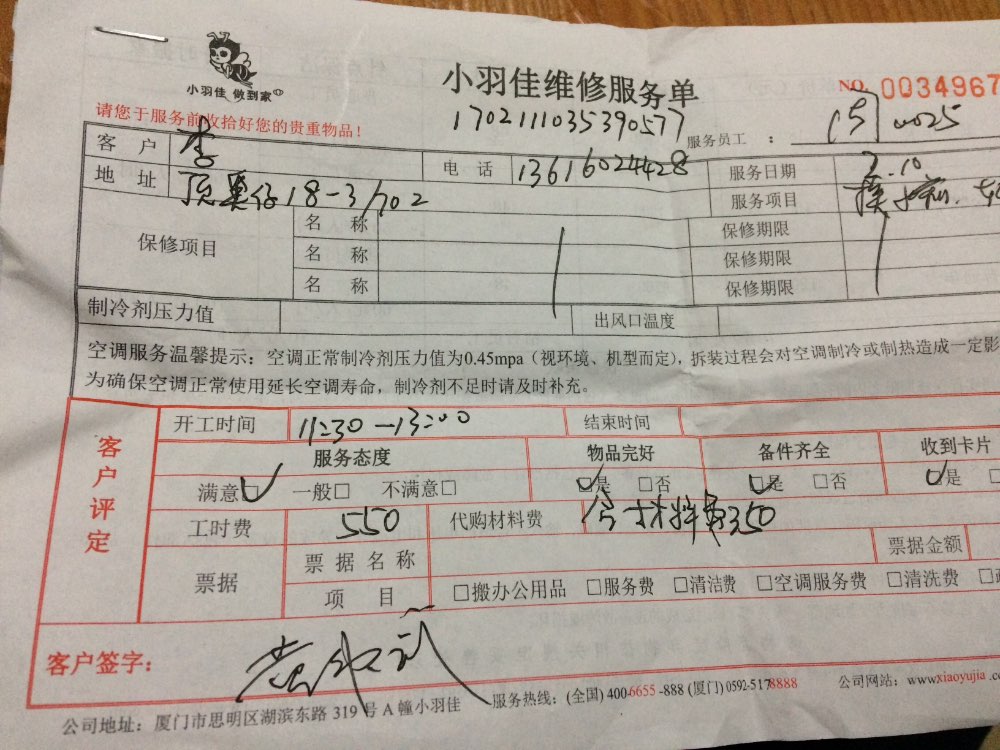 小羽佳 做到家
小羽佳维修服务单
NO. 0034967
请您于服务前收拾好您的贵重物品！
1702111035390577
服务员工 ： 0025
客 户 李 电 话 13616024428 服务日期 2.10
地 址 顶奥仔18-3/702 服务项目
保修项目 名 称 保修期限
名 称 保修期限
名 称 保修期限
制冷剂压力值 出风口温度
空调服务温馨提示：空调正常制冷剂压力值为0.45mpa（视环境、机型而定），拆装过程会对空调制冷或制热造成一定影
为确保空调正常使用延长空调寿命，制冷剂不足时请及时补充。
客户评定
开工时间 11:30－13:00 结束时间
服务态度 物品完好 备件齐全 收到卡片
满意□ 一般□ 不满意□ □是 □否 □是 □否 □是
工时费 550 代购材料费 含材料费350
票据 票据名称 票据金额
项 目 □搬办公用品 □服务费 □清洁费 □空调服务费 □清洗费
客户签字：
公司地址：厦门市思明区湖滨东路 319 号 A 幢小羽佳 服务热线：(全国) 400-6655-888 (厦门) 0592-5178888 公司网站：www.xiaoyujia.c